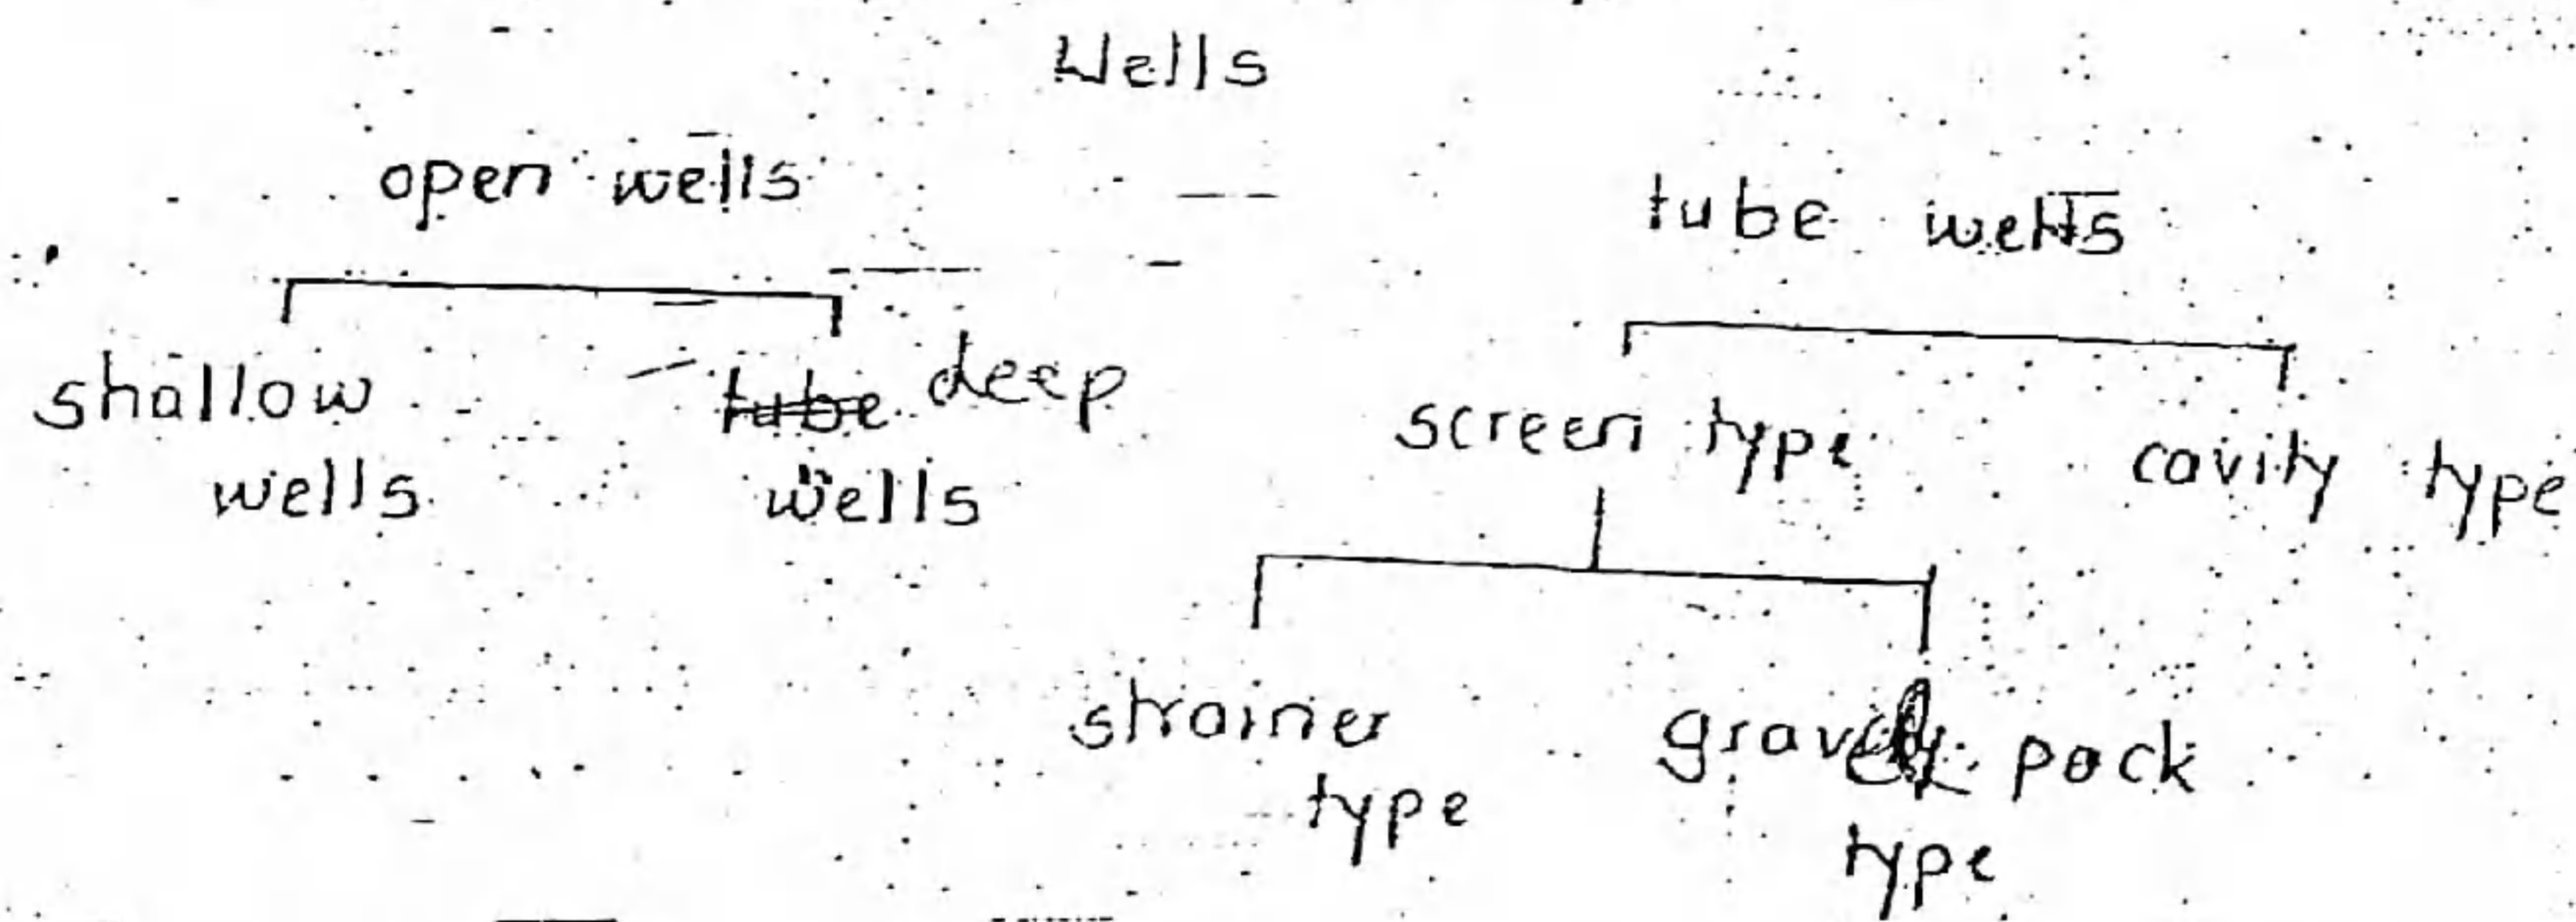 Wells
open wells
tube wells
shallow
wells
tube deep
wells
screen type
cavity type
strainer
type
gravel pack
type